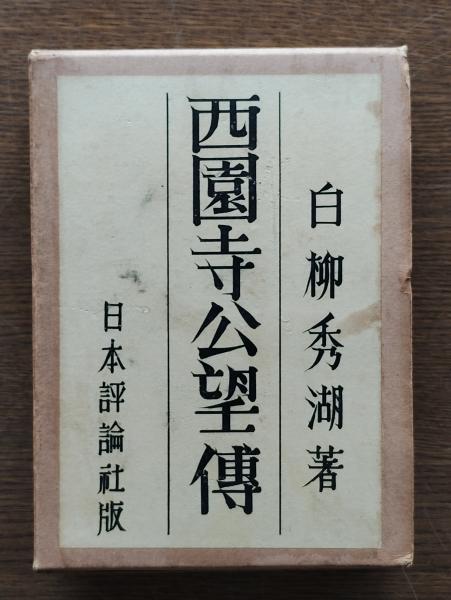 白柳秀湖著
西園寺公望傳
日本評論社版